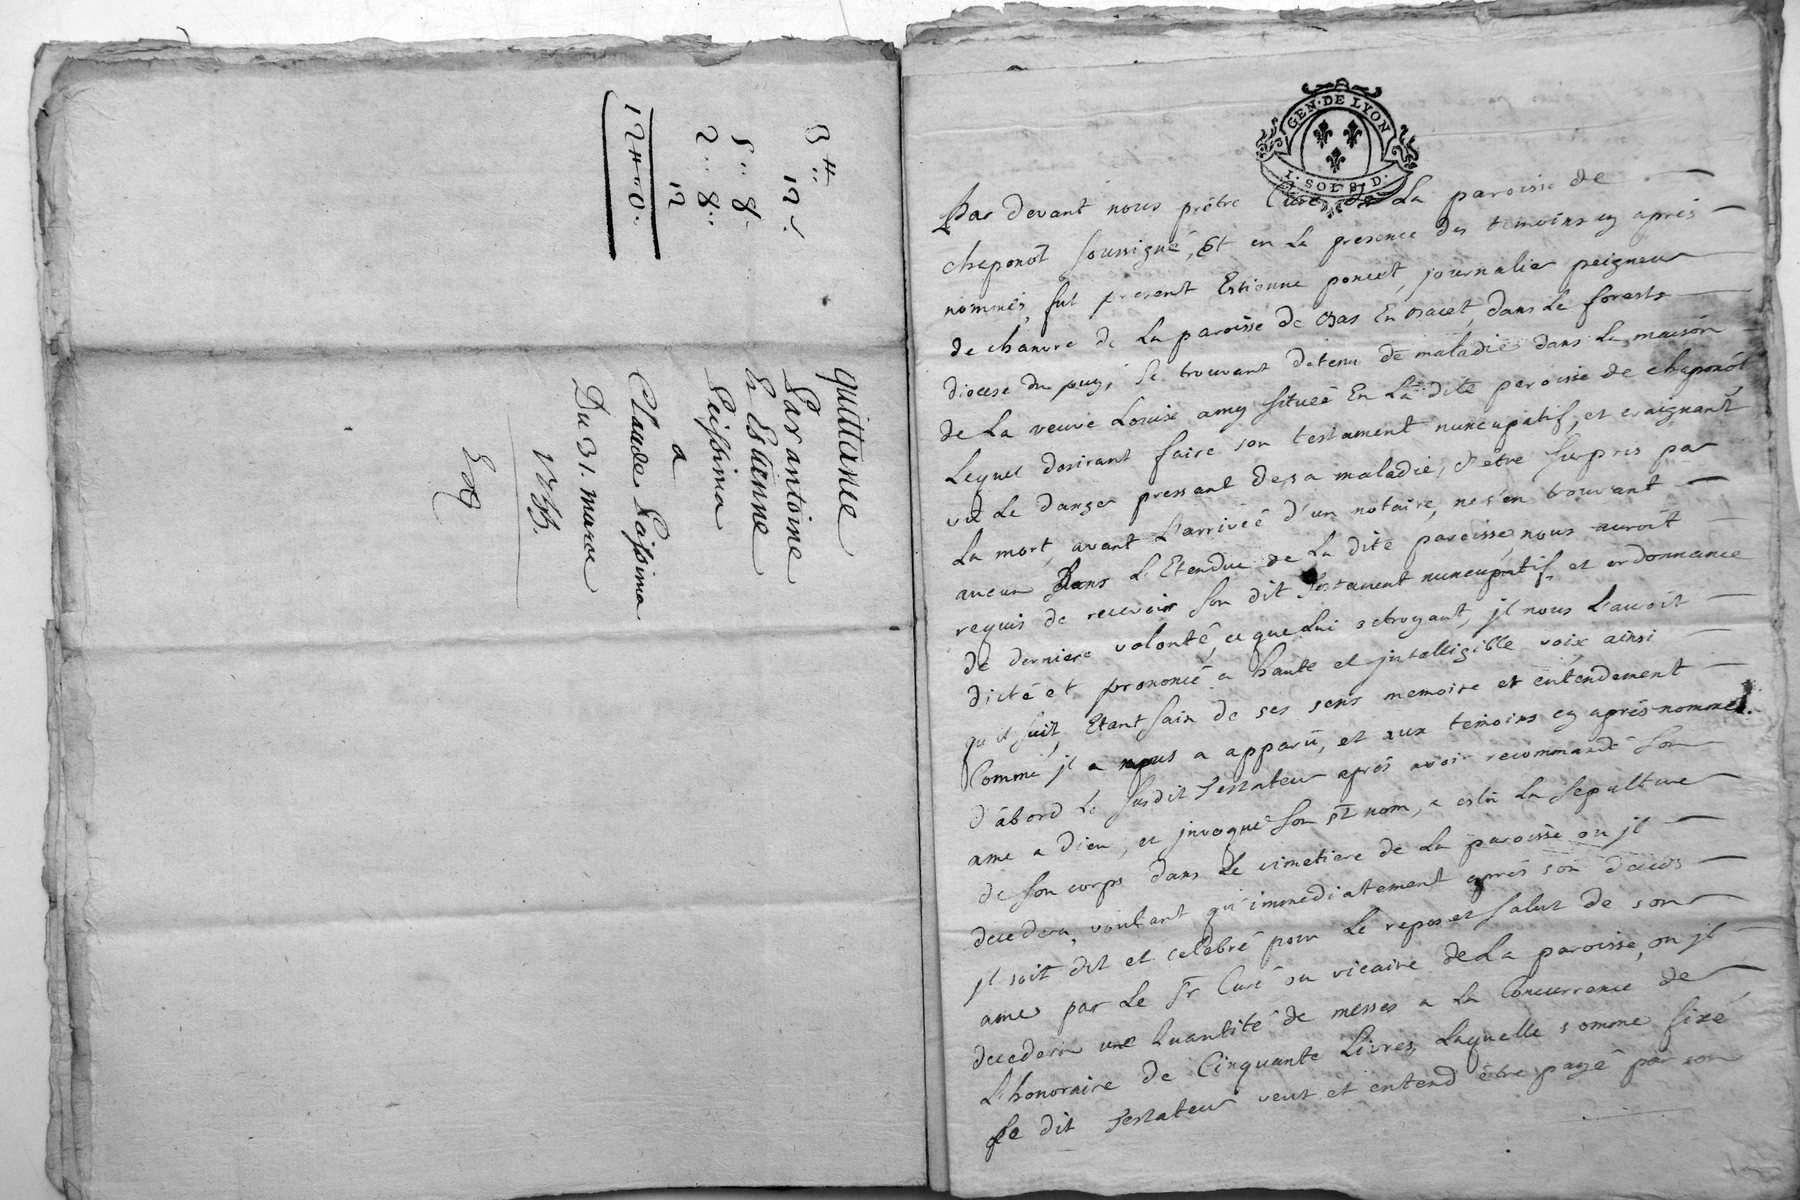 3ᵗᵗ.. 12 s.
5 .. 8.
2 .. 8..
12
12ᵗᵗ..0..
quittance
Par antoine
Et Estienne
Peissima
a
Claude Peissima
Du 31. mars
GEN·DE LYON
1. SOL 8 D.
Par devant nous prêtre Curé de La paroisse de
chaponôt soussigné, Et en La presence des temoins cy aprés
nommés, fut present Estienne poncet, journalier peigneur
de chanvre de La paroisse de Bas En Basset, dans Le forests
diocese du puy, se trouvant detenu de maladie dans La maison
de La veuve Louise amy situéé En La dite paroisse de chaponôt
Lequel desirant faire son testament nuncupatif, et craignant
vu Le danger pressant de sa maladie, d'etre surpris par
La mort, avant L'arrivéé d'un notaire, ne s'en trouvant
aucun dans L'Etendue de La dite paroisse, nous auroit
requis de recevoir son dit testament nuncupatif et ordonnance
de derniere volonté, ce que lui octroyant, jl nous L'auroit
dicté et prononcé a haute et jntelligible voix ainsi
qu'il suit, Etant sain de ses sens memoire et entendement
Comme jl a nous a apparû, et aux temoins cy aprés nommés.
d'âbord Le susdit Testateur aprés avoir recommandé son
ame a Dieu, et jnvoqué son sᵗ nom, a eslû La sepulture
de son corps dans Le cimetiere de La paroisse ou jl
decedera, voulant qu'immediatement aprés son deces
jl soit dit et celebré pour Le repos et salut de son
ame par Le Sʳ Curé ou vicaire de La paroisse, ou jl
decedera une quantité de messes a La Concurrence de
L'honoraire de Cinquante Livres, Laquelle somme fixé
Le dit Testateur veut et entend être payé par son